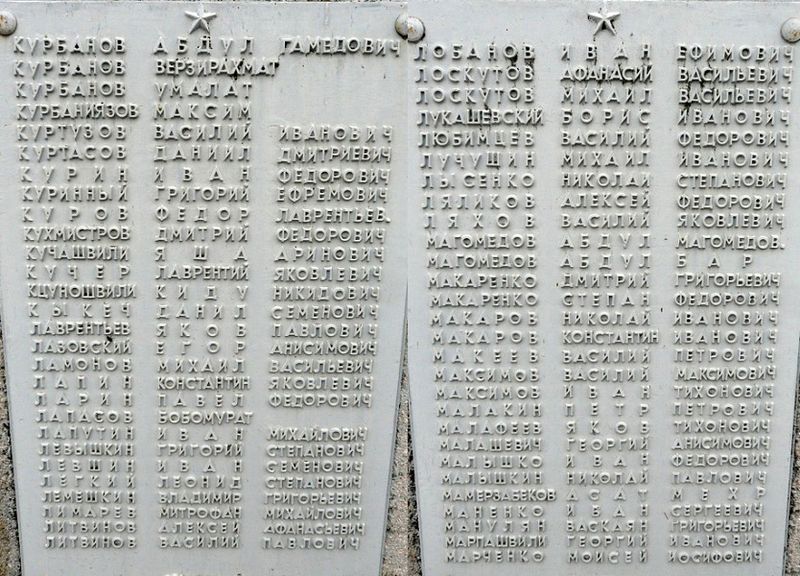 КУРБАНОВ АБДУЛ ГАМЕДОВИЧ
КУРБАНОВ ВЕРЗИРАХМАТ
КУРБАНОВ УМАЛАТ
КУРБАНИЯЗОВ МАКСИМ
КУРТУЗОВ ВАСИЛИЙ ИВАНОВИЧ
КУРТАСОВ ДАНИИЛ ДМИТРИЕВИЧ
КУРИН ИВАН ФЕДОРОВИЧ
КУРИННЫЙ ГРИГОРИЙ ЕФРЕМОВИЧ
КУРОВ ФЕДОР ЛАВРЕНТЬЕВ.
КУХМИСТРОВ ДМИТРИЙ ФЕДОРОВИЧ
КУЧАШВИЛИ ЯША АРИНОВИЧ
КУЧЕР ЛАВРЕНТИЙ ЯКОВЛЕВИЧ
КЦУНОШВИЛИ КИДУ НИКИДОВИЧ
КЫКЕЧ ДАНИЛ СЕМЕНОВИЧ
ЛАВРЕНТЬЕВ ЯКОВ ПАВЛОВИЧ
ЛАЗОВСКИЙ ЕГОР АНИСИМОВИЧ
ЛАМОНОВ МИХАИЛ ВАСИЛЬЕВИЧ
ЛАПИН КОНСТАНТИН ЯКОВЛЕВИЧ
ЛАРИН ПАВЕЛ ФЕДОРОВИЧ
ЛАПАСОВ БОБОМУРАТ
ЛАПУТИН ИВАН МИХАЙЛОВИЧ
ЛЕВЫШКИН ГРИГОРИЙ СТЕПАНОВИЧ
ЛЕВШИН ИВАН СЕМЕНОВИЧ
ЛЕГКИЙ ЛЕОНИД СТЕПАНОВИЧ
ЛЕМЕШКИН ВЛАДИМИР ГРИГОРЬЕВИЧ
ЛИМАРЕВ МИТРОФАН МИХАЙЛОВИЧ
ЛИТВИНОВ АЛЕКСЕЙ АФАНАСЬЕВИЧ
ЛИТВИНОВ ВАСИЛИЙ ПАВЛОВИЧ
ЛОБАНОВ ИВАН ЕФИМОВИЧ
ЛОСКУТОВ АФАНАСИЙ ВАСИЛЬЕВИЧ
ЛОСКУТОВ МИХАИЛ ВАСИЛЬЕВИЧ
ЛУКАШЕВСКИЙ БОРИС ИВАНОВИЧ
ЛЮБИМЦЕВ ВАСИЛИЙ ФЕДОРОВИЧ
ЛУЧУШИН МИХАИЛ ИВАНОВИЧ
ЛЫСЕНКО НИКОЛАЙ СТЕПАНОВИЧ
ЛЯЛИКОВ АЛЕКСЕЙ ФЕДОРОВИЧ
ЛЯХОВ ВАСИЛИЙ ЯКОВЛЕВИЧ
МАГОМЕДОВ АБДУЛ МАГОМЕДОВ.
МАГОМЕДОВ АБДУЛ БАР
МАКАРЕНКО ДМИТРИЙ ГРИГОРЬЕВИЧ
МАКАРЕНКО СТЕПАН ФЕДОРОВИЧ
МАКАРОВ НИКОЛАЙ ИВАНОВИЧ
МАКАРОВ КОНСТАНТИН ИВАНОВИЧ
МАКЕЕВ ВАСИЛИЙ ПЕТРОВИЧ
МАКСИМОВ ВАСИЛИЙ МАКСИМОВИЧ
МАКСИМОВ ИВАН ТИХОНОВИЧ
МАЛАКИН ПЕТР ПЕТРОВИЧ
МАЛАФЕЕВ ЯКОВ ТИХОНОВИЧ
МАЛАШЕВИЧ ГЕОРГИЙ АНИСИМОВИЧ
МАЛЫШКО ИВАН ФЕДОРОВИЧ
МАЛЫШКИН НИКОЛАЙ ПАВЛОВИЧ
МАМЕРЗАБЕКОВ АСАТ МЕХР
МАНЕНКО ИВАН СЕРГЕЕВИЧ
МАНУЛЯН ВАСКАЯН ГРИГОРЬЕВИЧ
МАРПАШВИЛИ ГЕОРГИЙ ИВАНОВИЧ
МАРЧЕНКО МОИСЕЙ ИОСИФОВИЧ